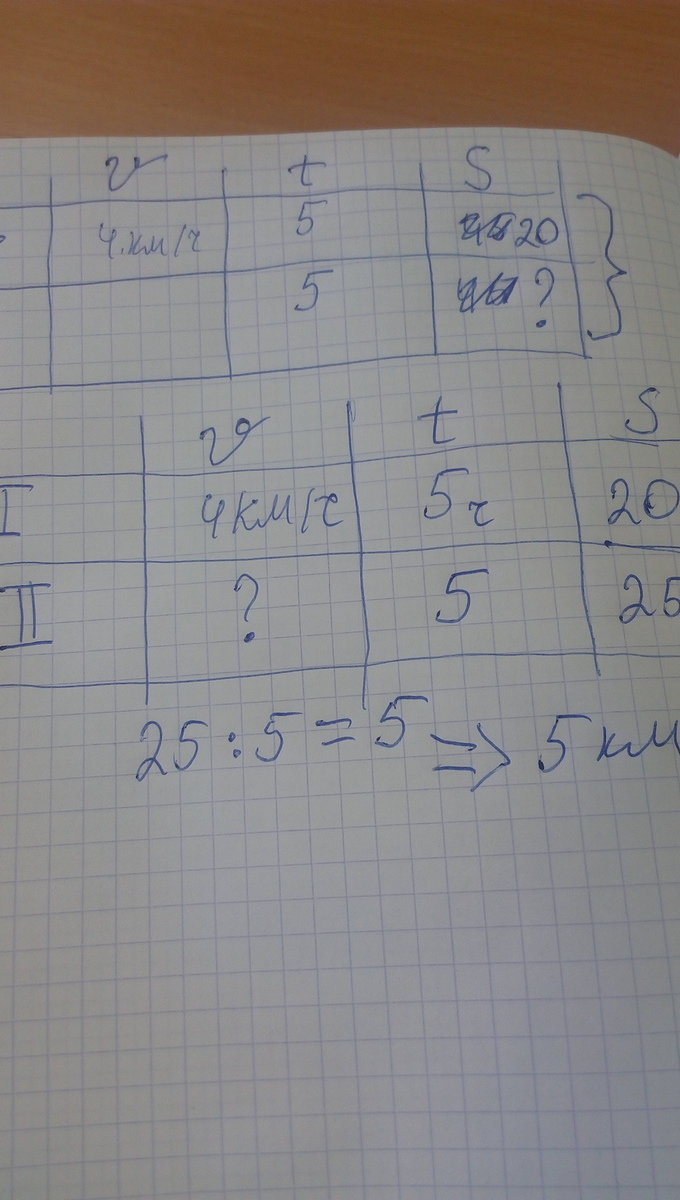 v t S
4 км/ч 5 20
5 ?
v t S
I 4 км/ч 5 ч 20
II ? 5 25
25 : 5 = 5 ⇒ 5 км